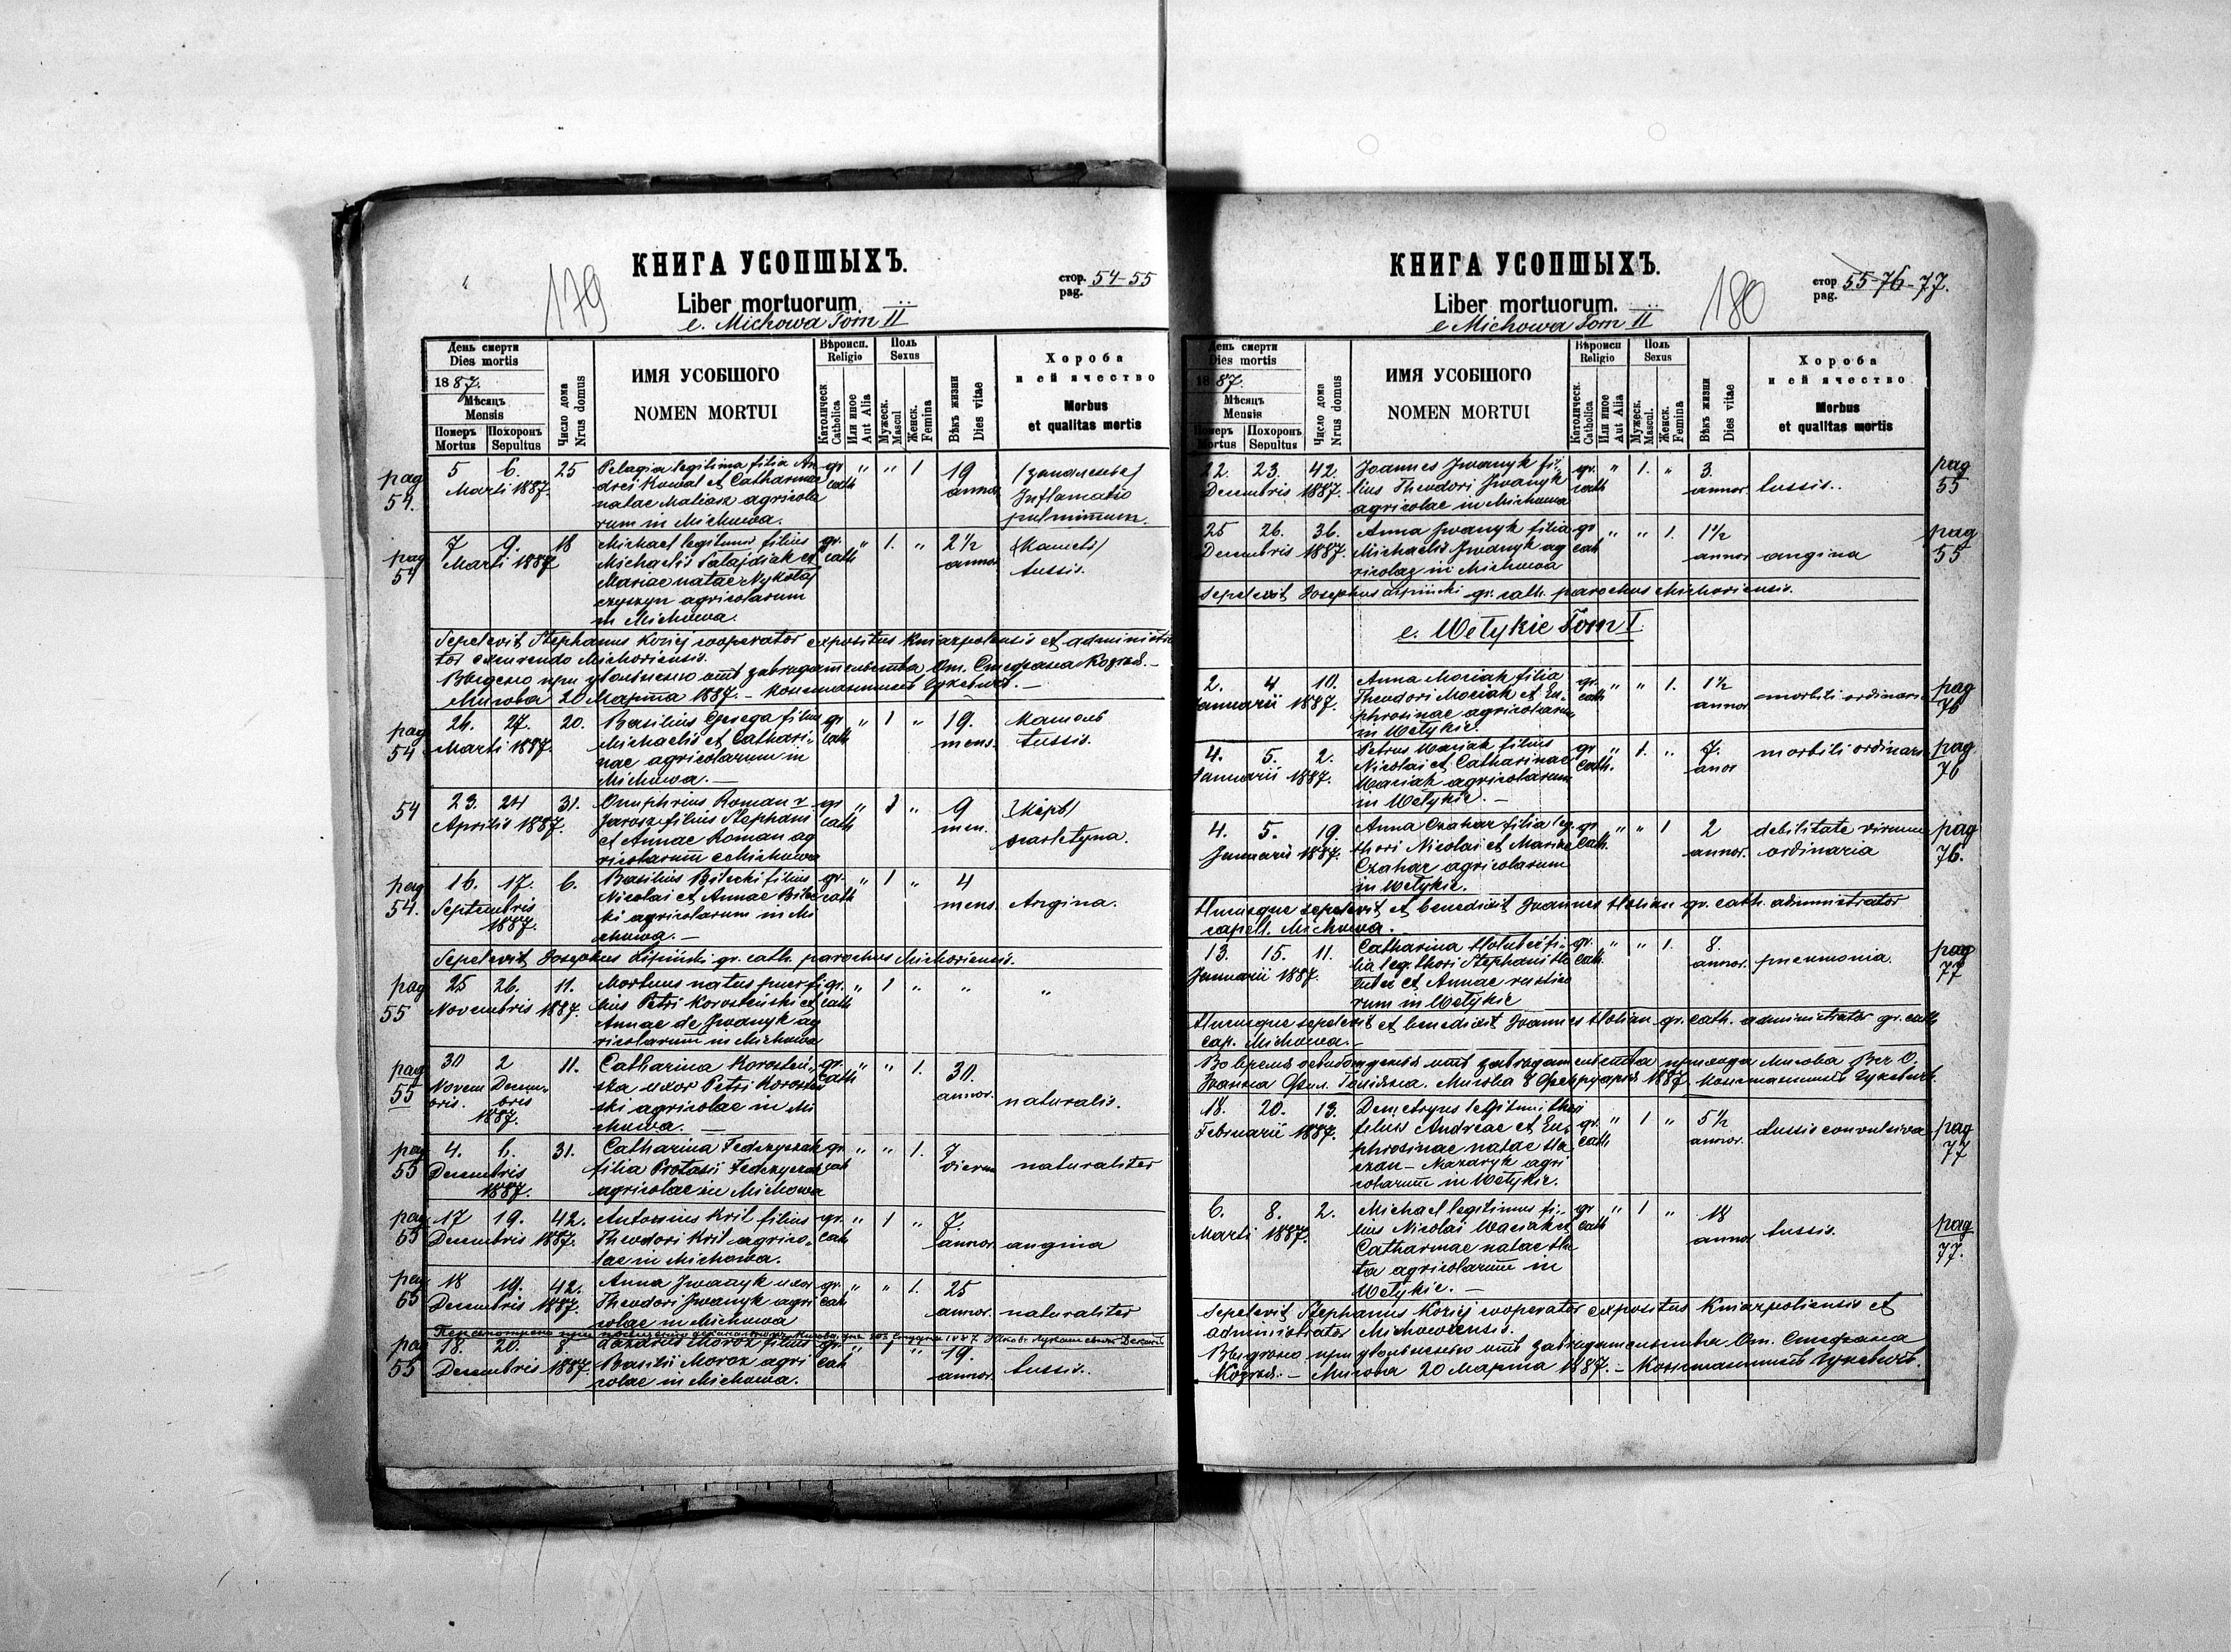 КНИГА УСОПШЫХЪ.
179
Liber mortuorum.
стор. pag. 54-55
e. Michowa Tom II
День смерти
Dies mortis
1887.
Мѣсяцъ
Mensis
Померъ Mortus
Похоронъ Sepultus
Число дома Nrus domus
ИМЯ УСОБШОГО
NOMEN MORTUI
Вѣроисп. Religio
Католическ Catholica
Или иное Aut Alia
Поль Sexus
Мужеск. Mascul
Женск. Femina
Вѣкъ жизни Dies vitae
Хороба
и ей ячество
Morbus
et qualitas mortis
pag 54. 5 6. 25 Pelagia legitima filia An- gr " " 1 19
Marti 1887. drei Kowal et Catharinae cath annor Inflamatio
natae Matiasz agricola
rum in Michowa.
pag 54 7 9. 18 Michael legitimus filius gr. " 1. " 2½
Marti 1887 Michaelis Palajdiak et cath annor tussis.
Mariae natae Mykołaj
czyszyn agricolarum
in Michowa.
Sepelevit Stephanus Koziej cooperator expositus Kniazpolensis et administra
tor excurendo Michoviensis.
Мигова 20 Марта 1887. —
pag 54 24. 27. 20. Basilius Gerega filius gr " 1 " 19. кашель
Marti 1887. Michaelis et Cathari- cath mens. tussis.
nae agricolarum in
Michowa. —
54 23. 24 31. Onuphrius Roman v gr " 1 " 9
Aprilis 1887. Jarosz filius Stephani cath men. scarletyna.
et Annae Roman ag
ricolarum e Michowa
pag 54. 16. 17. 6. Basilius Bilecki filius gr. " 1 " 4
Septembris 1887. Nicolai et Annae Bilec cath mens. Angina.
ki agricolarum in Mi
chowa. —
Sepelevit Josephus Lipiński gr. cath. parochus Michoviensis.
pag 55 25 26. 11. Mortuus natus puer fi gr. " 1 " " "
Novembris 1887. lius Petri Korosteński et cath
Annae de Jwanyk ag
ricolarum in Michowa
pag 55 30 2 11. Catharina Korosteń- gr. " " 1. 30.
Novembris. Decembris 1887. ska uxor Petri Korosteń cath annor. naturalis.
ski agricolae in Mi
chowa. —
pag 55 4. 6. 31. Catharina Fedczyszak gr. " " 1. 7
Decembris 1887. filia Protasii Fedczyszak cat dierum naturaliter
agricolae in Michowa
pag 55 17 19. 42. Antonius Kril filius gr. " 1 " 7.
Decembris 1887. Theodori Kril agrico- cath annor angina
lae in Michowa.
pag 55 18 19. 42. Anna Jwanyk uxor gr. " " 1. 25
Decembris 1887. Theodori Jwanyk agri cath annor. naturaliter
colae in Michowa
pag 55 18. 20. 8. Lazarus Moroz filius gr. " 1 " 19.
Decembris 1887. Basilii Moroz agri cath annor. tussis.
colae in Michowa.
КНИГА УСОПШЫХЪ.
Liber mortuorum.
180
стор pag. 55-76-77.
e Michowa Tom II
День смерти
Dies mortis
1887.
Мѣсяцъ
Mensis
Померъ Mortus
Похоронъ Sepultus
Число дома Nrus domus
ИМЯ УСОБШОГО
NOMEN MORTUI
Вѣроисп Religio
Католическ. Catholica
Или иное Aut Alia
Поль Sexus
Мужеск. Mascul.
Женск. Femina
Вѣкъ жизни Dies vitae
Хороба
и ей ячество
Morbus
et qualitas mortis
22. 23. 42. Joannes Jwanyk fi- gr. " 1. " 3. pag 55
Decembris 1887. lius Theodori Jwanyk cath annor. tussis.
agricolae in Michowa
25 26. 36. Anna Jwanyk filia gr " " 1. 1½ pag 55
Decembris 1887. Michaelis Jwanyk ag cath annor angina
ricolae in Michowa
Sepelevit Josephus Lipiński gr. cath. parochus Michoviensis.
e. Wełykie Tom I.
2. 4 10. Anna Mociak filia gr. " " 1. 1½ pag 76
Januarii 1887. Theodori Mociak et Eu- cath annor morbili ordinari
phrosinae agricolarum
in Wełykie.
4. 5. 2. Petrus Waciak filius gr " 1. " 7. morbili ordinari pag 76
Januarii 1887. Nicolai et Catharinae cath. anor
Waciak agricolarum
in Wełykie. —
4. 5. 19. Anna Czahar filia leg. gr. " " 1 2 debilitate virium pag 76.
Januarii 1887. thori Nicolai et Mariae cath. annor. ordinaria
Czahar agricolarum
in Wełykie.
Hucusque sepelevit et benedixit Joannes Holian gr. cath. administrator
capell. Michowa.
13. 15. 11. Catharina Hołubeć fi- gr. " " 1. 8. pag 77
Januarii 1887. lia leg. thori Stephani Ho cath. annor. pneumonia.
lubec et Annae rustico
rum in Wełykie
Hucusque sepelevit et benedixit Joannes Holian gr. cath. administrator gr. cath
cap. Michowa. —
18. 20. 13. Demetryus legitimi thori gr. " 1 " 5½ pag 77
Februarii 1887. filius Andreae et Eu- cath annor. tussis convulsiva
phrosinae natae
Mazaryk agri
colarum in Wełykie.
6. 8. 2. Michael legitimus fi- gr " 1 " 18 pag 77.
Marti 1887. lius Nicolai Waciak et cath annor tussis.
Catharinae natae
agricolarum in
Wełykie. —
Sepelevit Stephanus Koziej cooperator expositus Kniazpoliensis et
administrator Michowiensis.
Мигова 20 Марта 1887. —